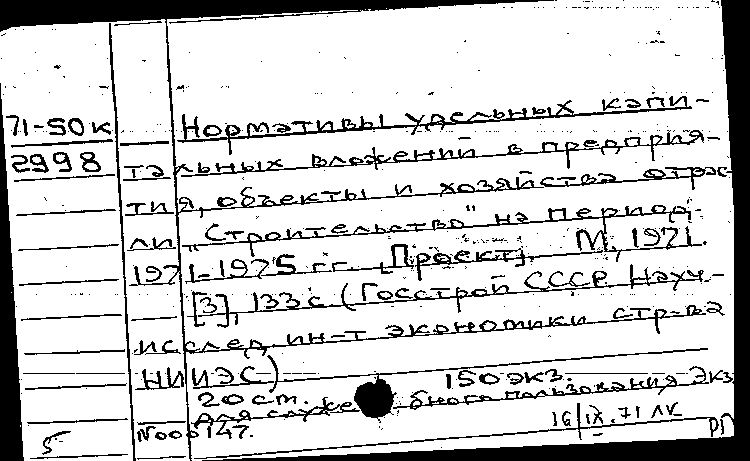 71-50к Нормативы удельных капи-
2998 тальных вложений в предприя-
тия, объекты и хозяйства отрас-
ли „Строительство" на период
1971-1975 гг. [Проект]. М., 1971.
[3], 133 с. (Госстрой СССР. Науч.-
исслед. ин-т экономики стр-ва
НИИЭС)
20 см. 150 экз.
Для служебного пользования Экз.
№ 000147.
16/IX.71 ЛК
5 РП